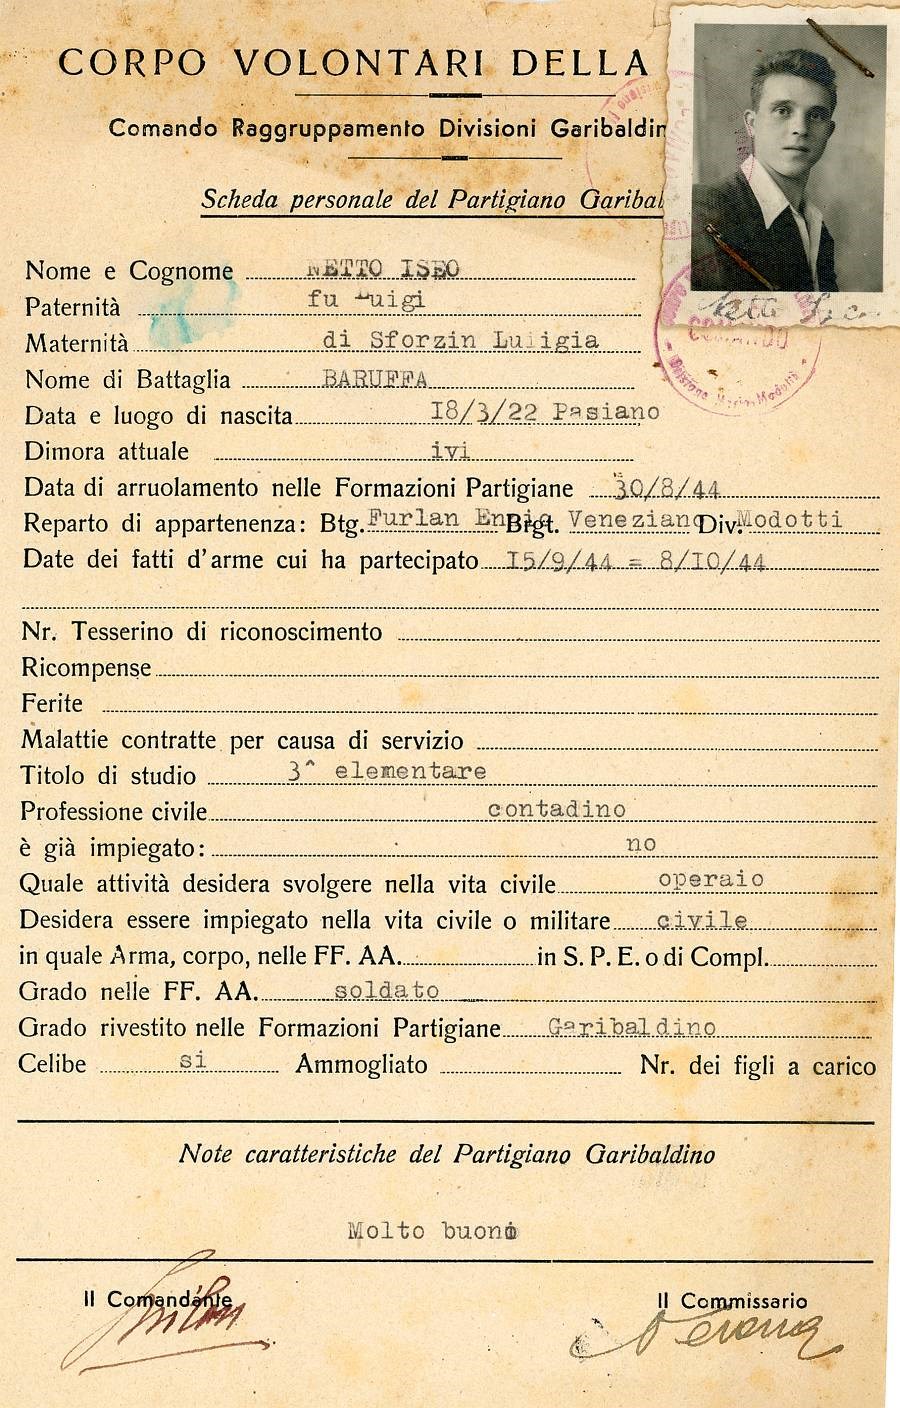 CORPO VOLONTARI DELLA
Comando Raggruppamento Divisioni Garibaldin
Scheda personale del Partigiano Garibal
Nome e Cognome NETTO ISEO
Paternità fu Luigi
Maternità di Sforzin Luligia
Nome di Battaglia BARUFFA
Data e luogo di nascita 18/3/22 Pasiano
Dimora attuale ivi
Data di arruolamento nelle Formazioni Partigiane 30/8/44
Reparto di appartenenza: Btg. Furlan Ennio Brgt. Veneziano Div. Modotti
Date dei fatti d'arme cui ha partecipato 15/9/44 = 8/10/44
Nr. Tesserino di riconoscimento
Ricompense
Ferite
Malattie contratte per causa di servizio
Titolo di studio 3^ elementare
Professione civile contadino
è già impiegato: no
Quale attività desidera svolgere nella vita civile operaio
Desidera essere impiegato nella vita civile o militare civile
in quale Arma, corpo, nelle FF. AA. in S. P. E. o di Compl.
Grado nelle FF. AA. soldato
Grado rivestito nelle Formazioni Partigiane Garibaldino
Celibe si Ammogliato Nr. dei figli a carico
Note caratteristiche del Partigiano Garibaldino
Molto buono
Il Comandante Il Commissario
COMANDO